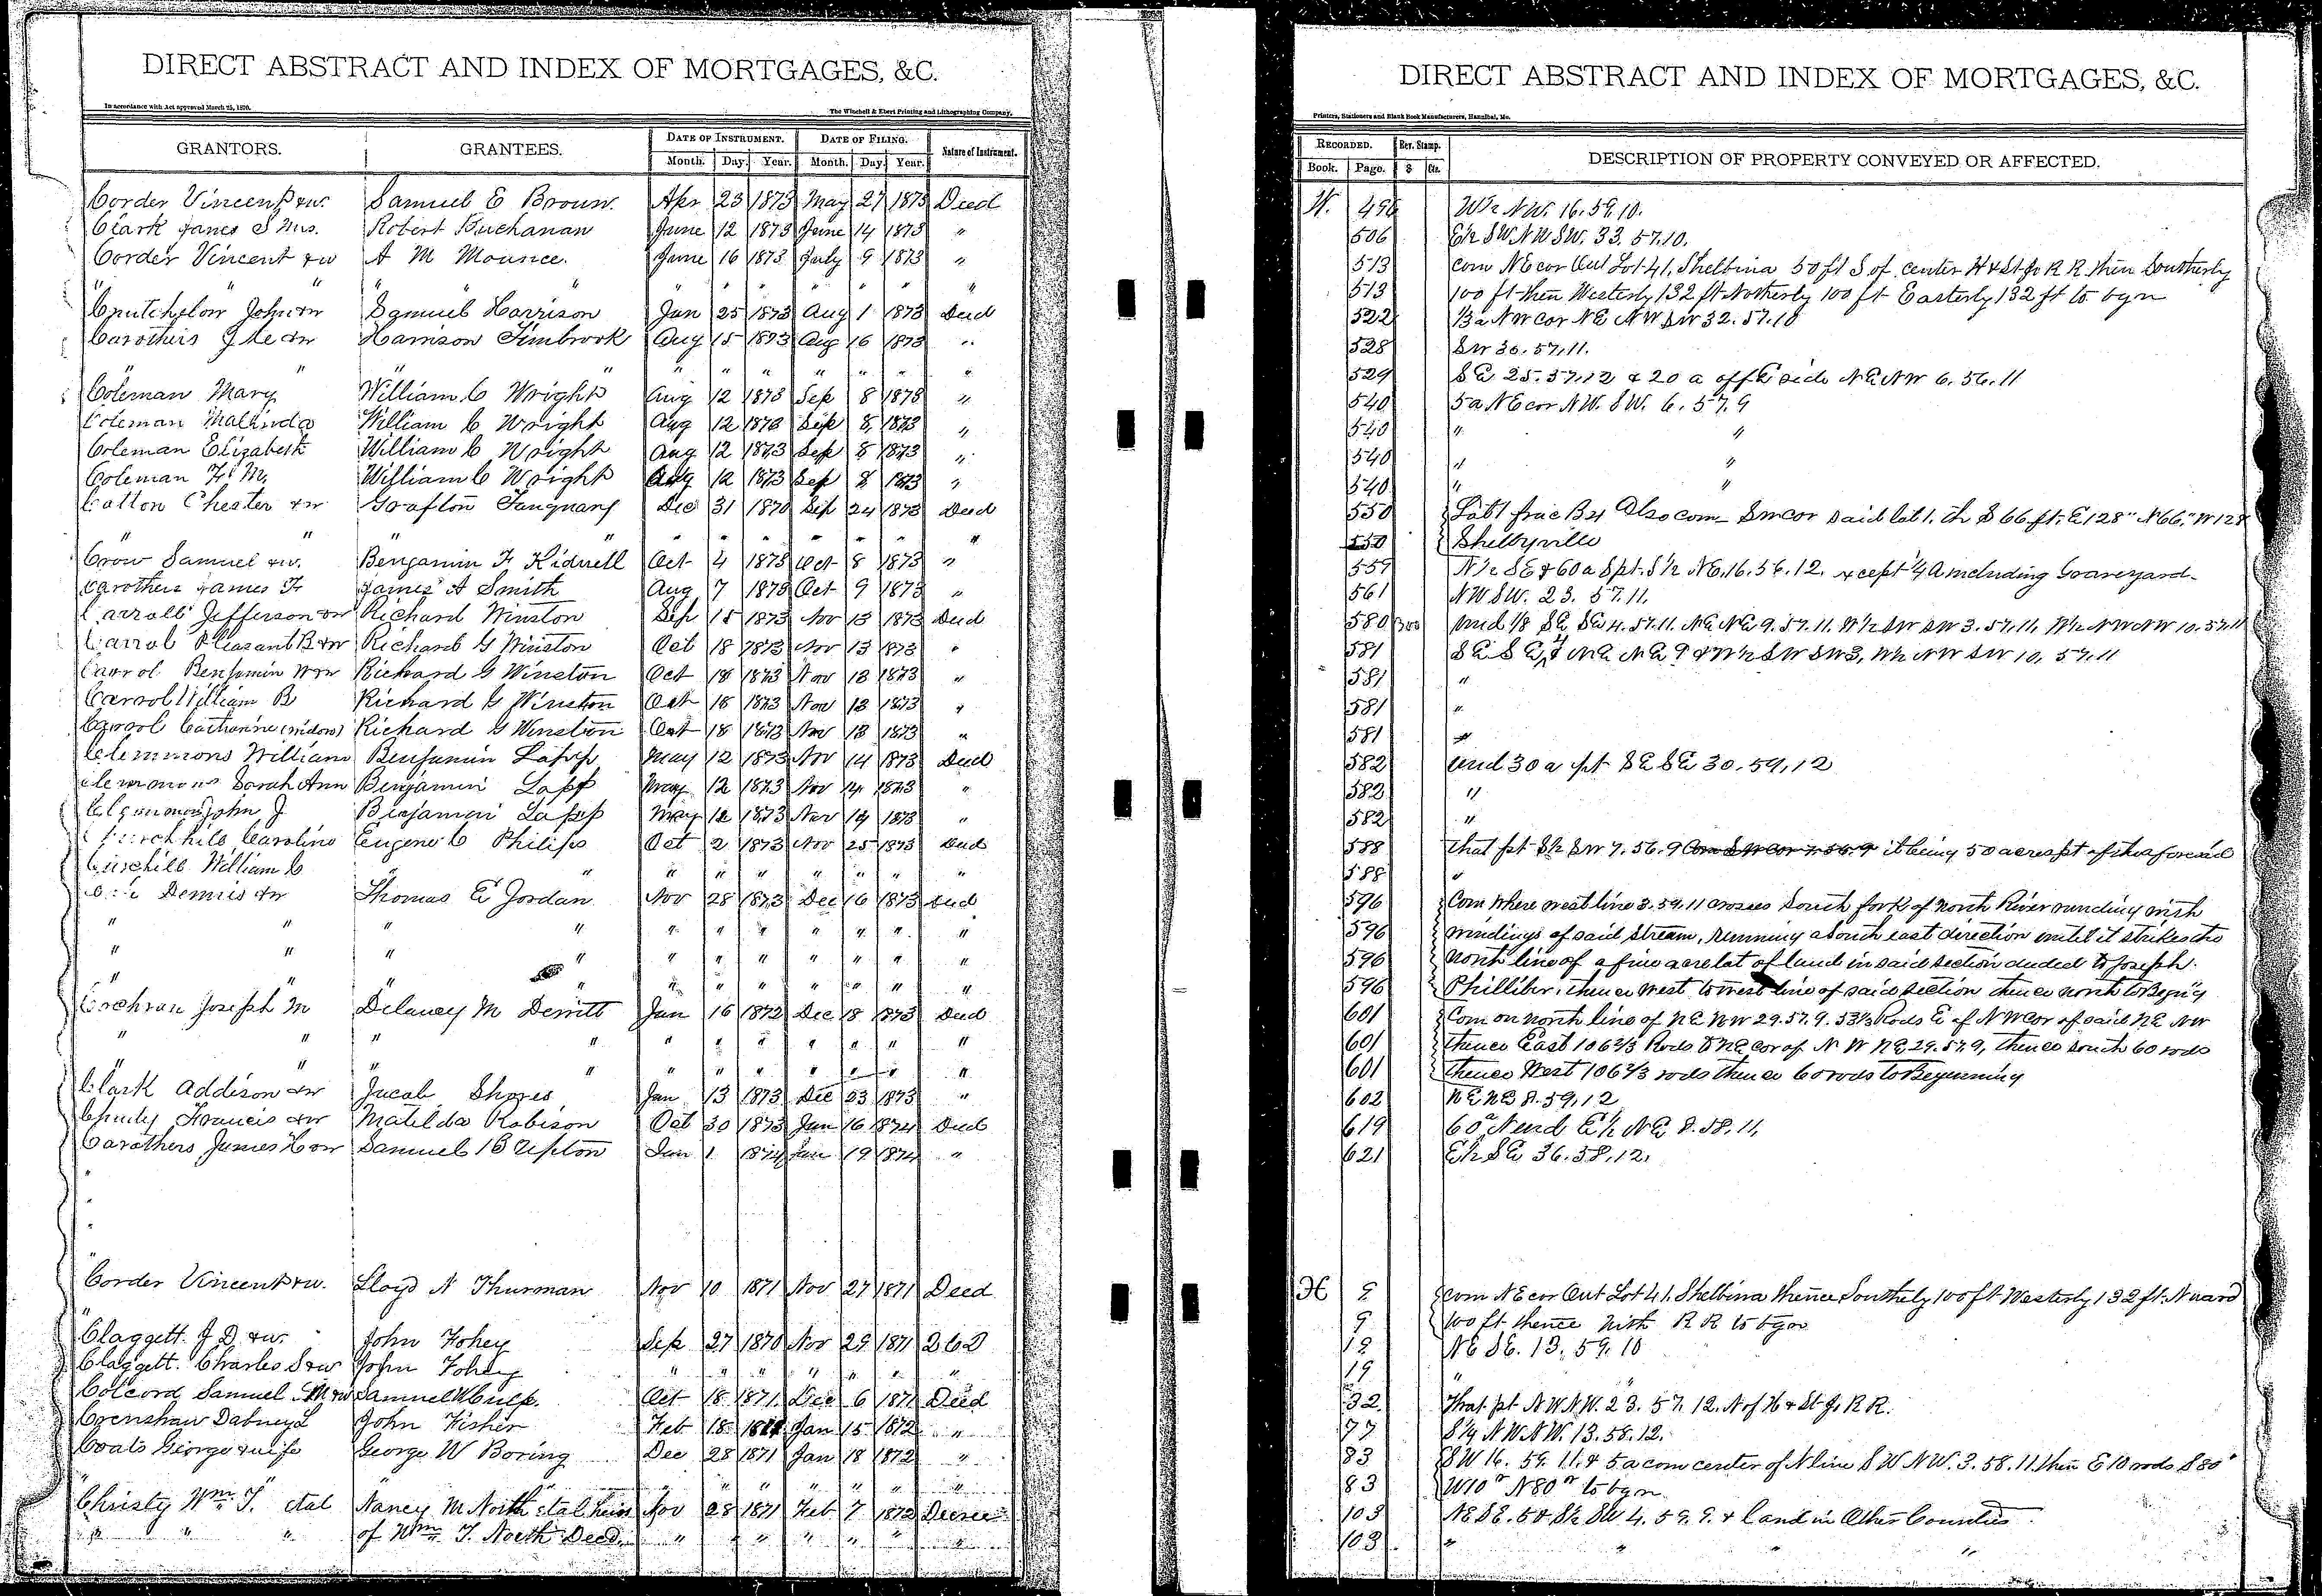 DIRECT ABSTRACT AND INDEX OF MORTGAGES, &C.
In accordance with Act approved March 25, 1870.
The Winchell & Ebert Printing and Lithographing Company,
GRANTORS. GRANTEES. DATE OF INSTRUMENT. DATE OF FILING. Nature of Instrument.
Month. Day. Year. Month. Day. Year.
Corder Vincent & w. Samuel E Brown. Apr 23 1873 May 27 1873 Deed
Clark James S Hus. Robert Buchanan June 12 1873 June 14 1873 "
Corder Vincent & w A M Mounce. June 16 1873 July 9 1873 "
" " " " " " " " " " "
Crutchelow John & w Samuel Harrison Jan 25 1873 Aug 1 1873 Deed
Carothers & w Harrison Timbrook Aug 15 1873 Aug 16 1873 "
" " " " " " " " " "
Coleman Mary William C Wright Aug 12 1873 Sep 8 1873 "
Coleman Malinda William C Wright Aug 12 1873 Sep 8 1873 "
Coleman Elizabeth William C Wright Aug 12 1873 Sep 8 1873 "
Coleman F. M. William C Wright Aug 12 1873 Sep 8 1873 "
Catton Chester & w Grafton Tanquary Dec 31 1870 Sep 24 1873 Deed
" " " " " " " " " "
Crow Samuel & w. Benjamin F Kidwell Oct 4 1873 Oct 8 1873 "
Carothers James F James A Smith Aug 7 1873 Oct 9 1873 "
Carroll Jefferson & w Richard Winston Sep 15 1873 Nov 13 1873 Deed
Carrol Pleasant B & w Richard G Winston Oct 18 1873 Nov 13 1873 "
Carrol Benjamin W & w Richard G Winston Oct 18 1873 Nov 13 1873 "
Carrol William B Richard G Winston Oct 18 1873 Nov 13 1873 "
Carrol Catharine (widow) Richard G Winston Oct 18 1873 Nov 13 1873 "
Clemmons William Benjamin Lapp May 12 1873 Nov 14 1873 Deed
Clemmons Sarah Ann Benjamin Lapp May 12 1873 Nov 14 1873 "
Clemmons John J Benjamin Lapp May 12 1873 Nov 14 1873 "
Churchhill Caroline Eugene C Philips Oct 2 1873 Nov 25 1873 Deed
Churchill William C " " " " " " " "
Dennis & w Thomas E Jordan Nov 28 1873 Dec 16 1873 Deed
" " " " " " " " " " "
" " " " " " " " " " "
" " " " " " " " " " "
Cochran Joseph M Delaney M Derritt Jan 16 1872 Dec 18 1873 Deed
" " " " " " " " " " "
" " " " " " " " " " "
Clark Addison & w Jacob Shores Jan 13 1873 Dec 23 1873 "
Francis & w Matilda Robison Oct 30 1873 Jan 16 1874 Deed
Carothers James H & w Samuel B Upton Jan 1 1874 Jan 19 1874 "
Corder Vincent & w. Lloyd N Thurman Nov 10 1871 Nov 27 1871 Deed
"
Claggett. J D & w. John Fohey Sep 27 1870 Nov 29 1871 2 C D
Claggett. Charles S & w John Fohey " " " " " " "
Colcord Samuel M & w Samuel W Culp. Oct 18 1871 Dec 6 1871 Deed
Crenshaw Dabney L John Fisher Feb 18 Jan 15 1872 "
Coats George & wife George W Boring Dec 28 1871 Jan 18 1872 "
" " " " " " " "
Christy Wm T. etal Nancy M North etal heirs Nov 28 1871 Feb 7 1872 Decree
" " " of Wm T. North Decd. " " " " " "
DIRECT ABSTRACT AND INDEX OF MORTGAGES, &C.
Printers, Stationers and Blank Book Manufacturers, Hannibal, Mo.
RECORDED. Rev. Stamp. DESCRIPTION OF PROPERTY CONVEYED OR AFFECTED.
Book. Page. $ Cts.
W. 496 W½ NW. 16. 59. 10.
506 E½ SW NW SW. 33. 57. 10.
513 Com NE cor Out Lot 41. Shelbina 50 ft S of center H & St Jo R R then Southerly
513 100 ft then Westerly 132 ft Northerly 100 ft Easterly 132 ft to bgn
522 13 a NW Cor NE NW SW 32. 57. 10
528 SW 30. 57. 11.
529 SE 25. 57. 12 & 20 a off E side NE NW 6. 56. 11
540 5 a NE cor NW. SW. 6. 57. 9
540 " "
540 " "
540 " "
550 Lot 1 frac B4 Also com SW cor said lot 1. th S 66 ft. E 128" N 66" W 128
550 Shelbyville
559 N½ SE & 60 a S pt S½ NE. 16. 56. 12. except ¼ A including Graveyard
561 NW SW. 23. 57. 11.
580 3 00 und 1/8 SE SE 4. 57. 11. NE NE 9. 57. 11. W½ SW SW 3. 57. 11. W½ NW NW 10. 57. 11
581 SE SE 4 NE NE 9 & W½ SW SW 3, W½ NW SW 10, 57. 11
581 "
581 "
581 "
582 und 30 a pt SE SE 30. 59, 12
582 "
582 "
588 that pt S½ SW 7. 56. 9 Com SW Cor 7. 56. 9 it being 50 acres pt of the aforesaid
588 "
596 Com where west line 3. 59. 11 crosses South fork of North River running with
596 windings of said Stream, running a South east direction until it strikes the
596 North line of a five acre lot of land in said section deeded to Joseph
596 Philliber, thence West to West line of said section thence north to Begin'g
601 Com on north line of NE NW 29. 57. 9. 53⅓ Rods E of NW Cor of said NE NW
601 thence East 106⅔ Rods to NE cor of N W NE 29. 57. 9, thence South 60 rods
601 thence West 106⅔ rods thence 60 rods to Beginning
602 NE NE 8. 59, 12
619 60 a N end E½ NE 8. 58. 11,
621 E½ SE 36. 58, 12.
H 9 com NE cor Out Lot 41. Shelbina thence Southerly 100 ft Westerly 132 ft. N ward
9 100 ft thence with R R to bgn
19 NE SE. 13. 59. 10
19 "
32 That pt NW NW. 23. 57. 12. N of H & St Jo R R.
77 S ¼ NW NW. 13. 58. 12.
83 SW 16. 59. 11. & 5 a com center of N line SW NW. 3. 58. 11. then E 10 rods S 80"
83 W 10" N 80" to bgn
103 NE SE. 5 & S½ SW 4. 59. 9. & land in Other Counties
103 " " " "